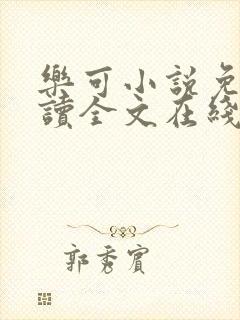 樂可小說免
讀全文在綫
郭秀賓